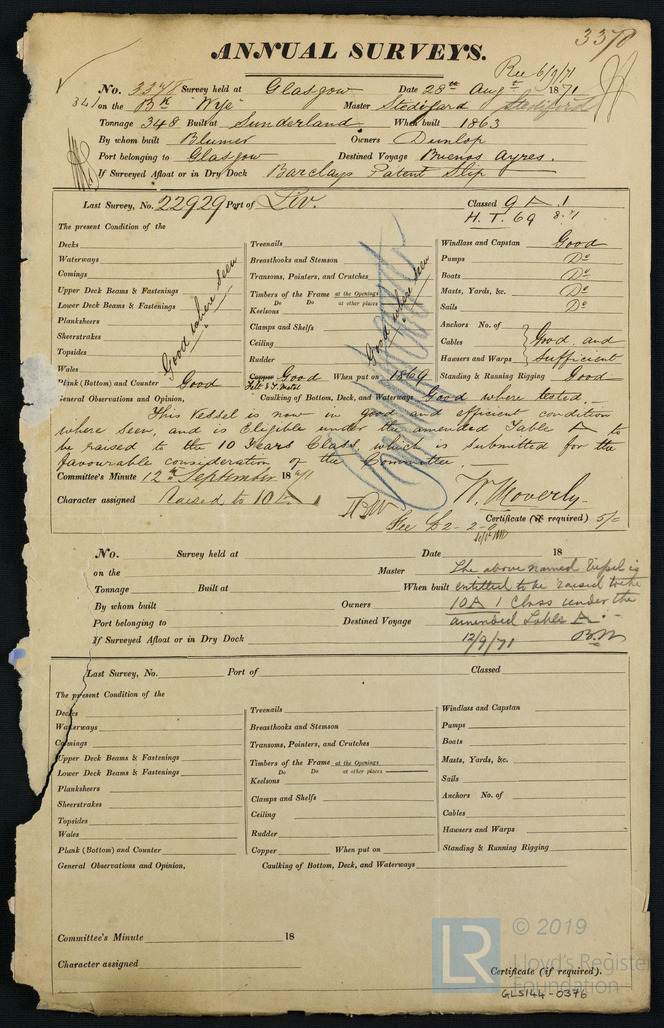 3378
ANNUAL SURVEYS.
Rec 6/9/71
No. 3378 Survey held at Glasgow Date 28th Augst 1871
341 on the Bk "Wye" Master Stedifard Stediford
Tonnage 348 Built at Sunderland When built 1863
By whom built Blumer Owners Dunlop
Port belonging to Glasgow Destined Voyage Buenos Ayres.
If Surveyed Afloat or in Dry Dock Barclays Patent Slip
Last Survey, No. 22929 Port of Liv. Classed 9 A 1
H.T. 69 8.71
The present Condition of the
Decks
Waterways
Comings
Upper Deck Beams & Fastenings
Lower Deck Beams & Fastenings
Planksheers
Sheerstrakes
Topsides
Wales
Good where seen
Plank (Bottom) and Counter Good
Treenails
Breasthooks and Stemson
Transoms, Pointers, and Crutches
Timbers of the Frame at the Openings
Do Do at other places
Keelsons
Clamps and Shelfs
Ceiling
Rudder
Good where seen
Copper Good When put on 1869
Felt & Y. Metal
Windlass and Capstan Good
Pumps Do
Boats Do
Masts, Yards, &c. Do
Sails Do
Anchors No. of
Cables Good and
Hawsers and Warps Sufficient
Standing & Running Rigging Good
General Observations and Opinion, Caulking of Bottom, Deck, and Waterways Good where tested.
This Vessel is now in good and efficient condition
where seen, and is Eligible under the amended Table A to
be raised to the 10 Years Class, which is submitted for the
favourable consideration of the Committee.
Committee's Minute 12th September 1871
Character assigned Raised to 10 A 1
W. Moverly
Fee £2-2-0 Certificate (if required) 5/-
No. Survey held at Date 18
on the Master The above named Vessel is
Tonnage Built at When built entitled to be raised to the
By whom built Owners 10 A 1 Class under the
Port belonging to Destined Voyage amended Tables A.
If Surveyed Afloat or in Dry Dock 12/9/71
Last Survey, No. Port of Classed
The present Condition of the
Decks
Waterways
Comings
Upper Deck Beams & Fastenings
Lower Deck Beams & Fastenings
Planksheers
Sheerstrakes
Topsides
Wales
Plank (Bottom) and Counter
Treenails
Breasthooks and Stemson
Transoms, Pointers, and Crutches
Timbers of the Frame at the Openings
Do Do at other places
Keelsons
Clamps and Shelfs
Ceiling
Rudder
Copper When put on
Windlass and Capstan
Pumps
Boats
Masts, Yards, &c.
Sails
Anchors No. of
Cables
Hawsers and Warps
Standing & Running Rigging
General Observations and Opinion, Caulking of Bottom, Deck, and Waterways
Committee's Minute 18
Character assigned
Certificate (if required).
© 2019
LR Lloyd's Register
Foundation
GLS144-0376